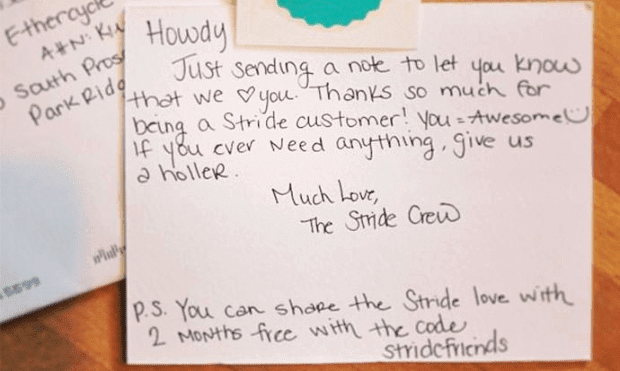 Ethercycle
South
Park Ridg
Howdy
Just sending a note to let you know
that we ♡ you. Thanks so much for
being a Stride customer! You = Awesome
If you ever need anything, give us
a holleR.
Much Love,
The Stride Crew
P.S. You can share the Stride love with
2 MONths free with the code
stridefriends